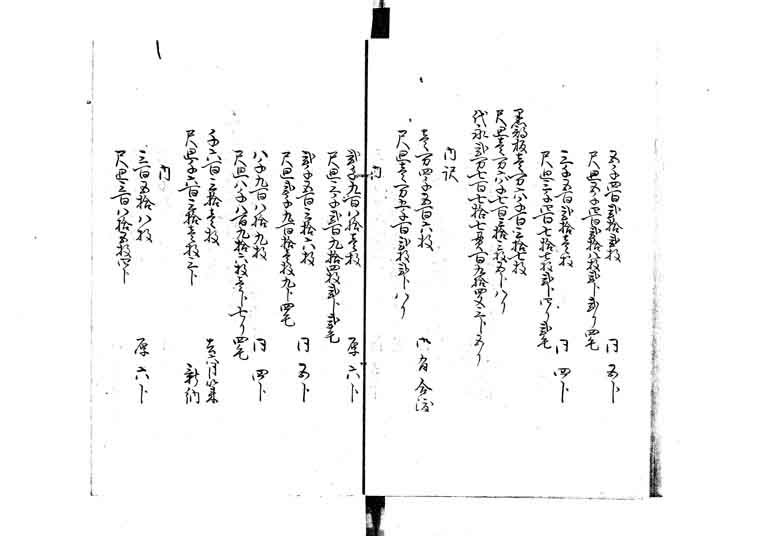 五千四百弐拾弐枚 同五卜
尺〆五千四百弐拾八枚弐卜五り四毛
三千五百弐拾壱枚 同四卜
尺〆三千四百七拾七枚弐卜四り弐毛
黒部板壱万八千五百三拾七枚
尺〆壱万六千七百三拾三枚五卜八り
代永弐万七百七拾七貫百九拾四文三卜五り
内訳
壱万四千五百六枚
尺〆壱万五千百弐枚弐卜八り
内
弐千九百八拾壱枚 厚六卜
尺〆三千弐百九拾四枚弐卜弐毛
弐千五百三拾六枚 同五卜
尺〆弐千九百拾壱枚九卜四毛
八千九百八拾九枚 同四卜
尺〆八千八百九拾六枚壱卜七り四毛
千六百三拾壱枚
尺〆千六百三拾壱枚三卜 新納
内
三百五拾八枚 厚六卜
尺〆三百八拾五枚四卜